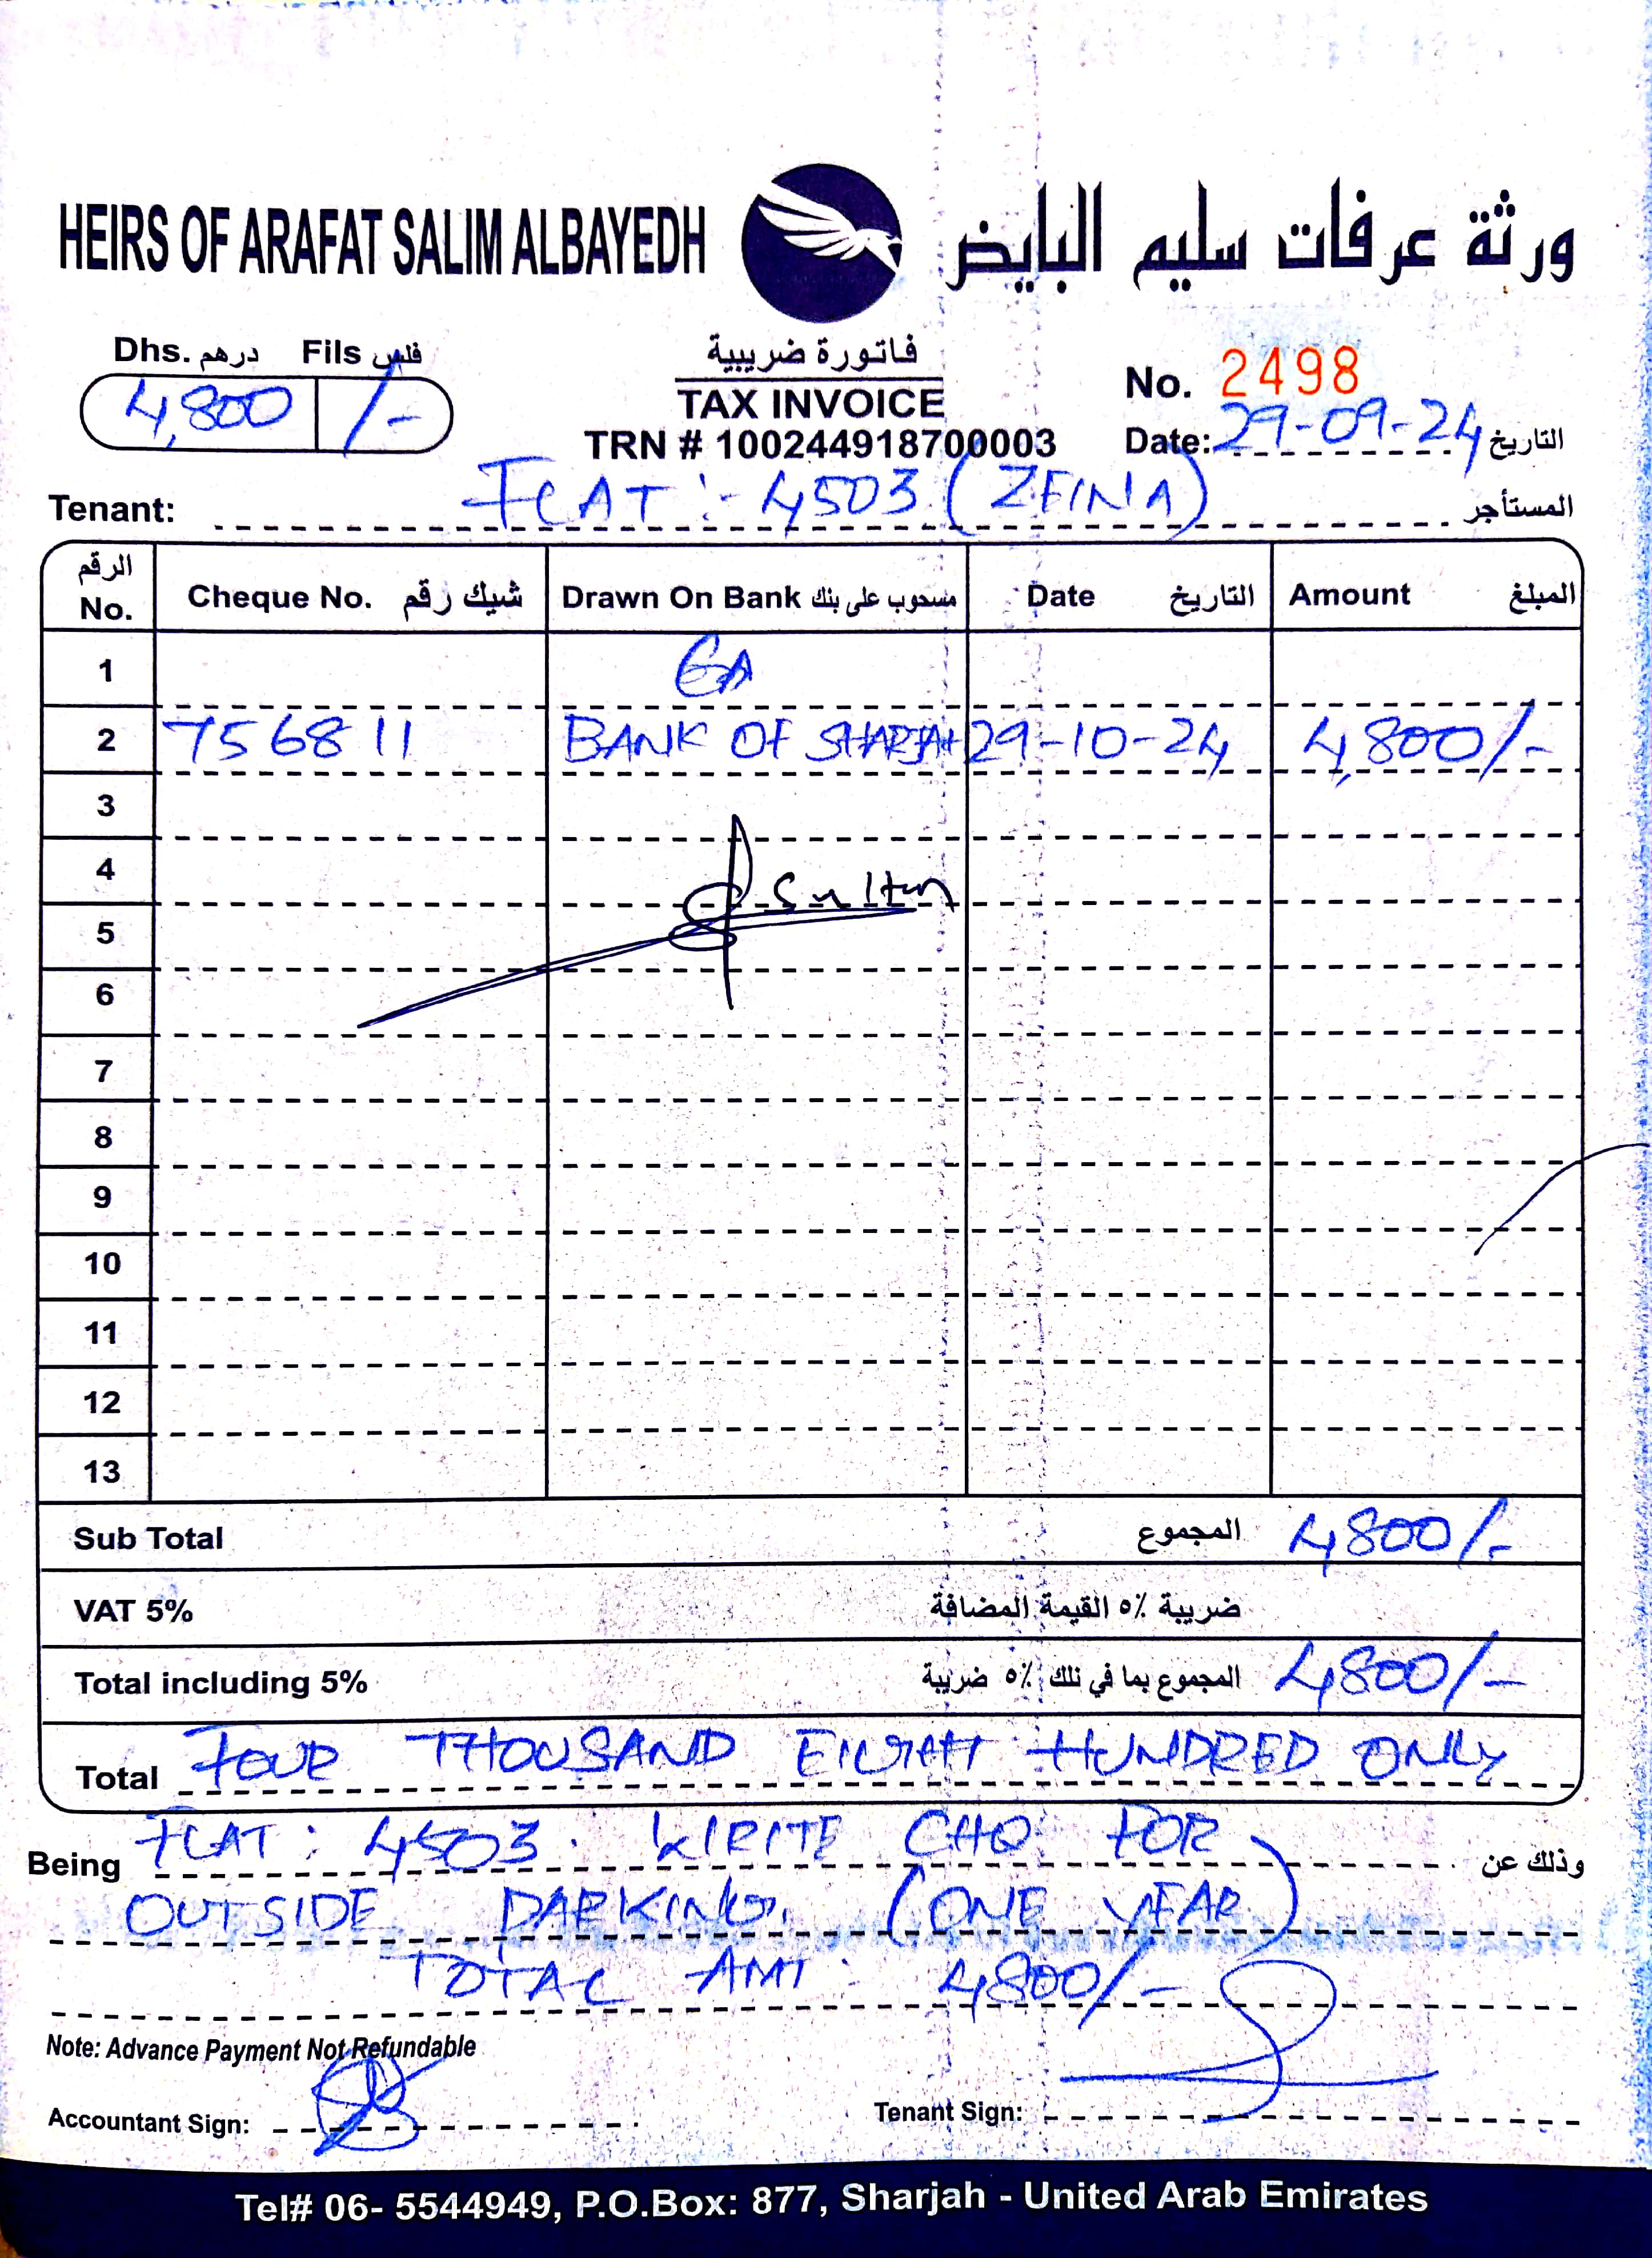 HEIRS OF ARAFAT SALIM ALBAYEDH ورثة عرفات سليم البايض
Dhs. درهم Fils فلس
4,800 /-
فاتورة ضريبية
TAX INVOICE
TRN # 100244918700003
No. 2498
Date: 29-09-24 التاريخ
Tenant: FLAT :- 4503 (ZEINA) المستأجر
الرقم No. Cheque No. شيك رقم Drawn On Bank مسحوب على بنك Date التاريخ Amount المبلغ
1
2 756811 BANK OF SHARJAH 29-10-24 4,800/-
3
4
Sultan
5
6
7
8
9
10
11
12
13
Sub Total المجموع 4,800/-
VAT 5% ضريبة ٥٪ القيمة المضافة
Total including 5% المجموع بما في ذلك ٥٪ ضريبة 4,800/-
Total FOUR THOUSAND EIGHT HUNDRED ONLY
Being FLAT : 4503. WRITE CHQ FOR وذلك عن
OUTSIDE PARKING. (ONE YEAR)
TOTAL AMT : 4,800/-
Note: Advance Payment Not Refundable
Accountant Sign: Tenant Sign:
Tel# 06- 5544949, P.O.Box: 877, Sharjah - United Arab Emirates